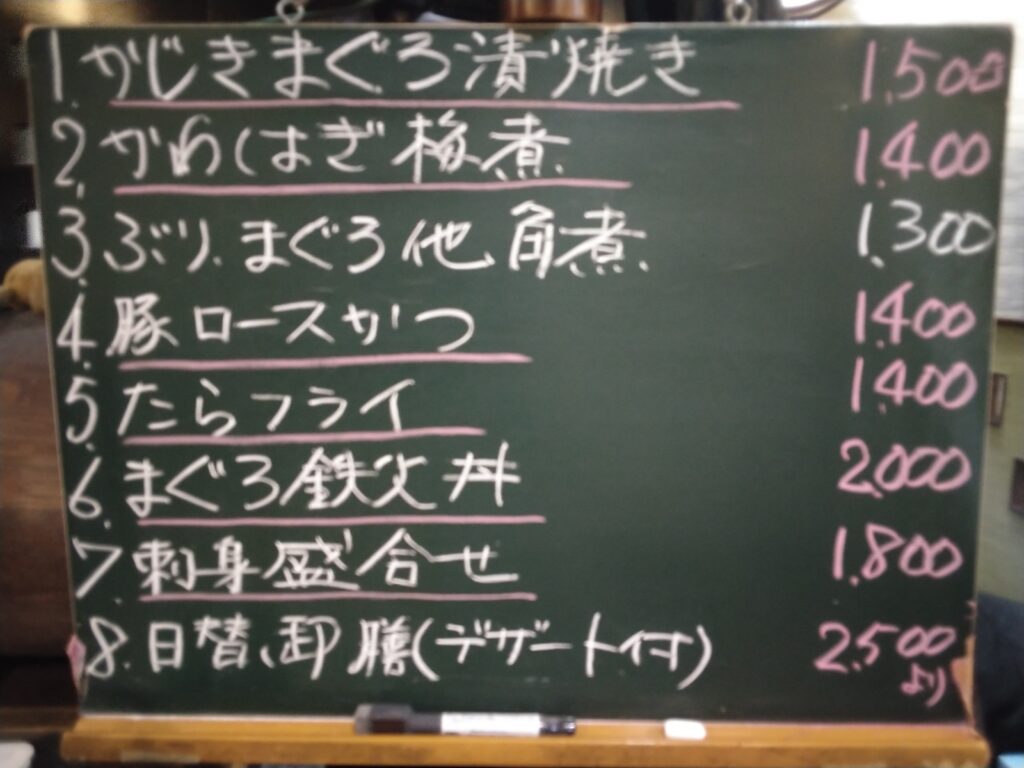 1.かじきまぐろ漬焼き 1.500
2.かわはぎ梅煮 1.400
3.ぶり.まぐろ他角煮 1.300
4.豚ロースかつ 1.400
5.たらフライ 1.400
6.まぐろ鉄火丼 2.000
7.刺身盛合せ 1.800
8.日替、御膳(デザート付) 2.500より